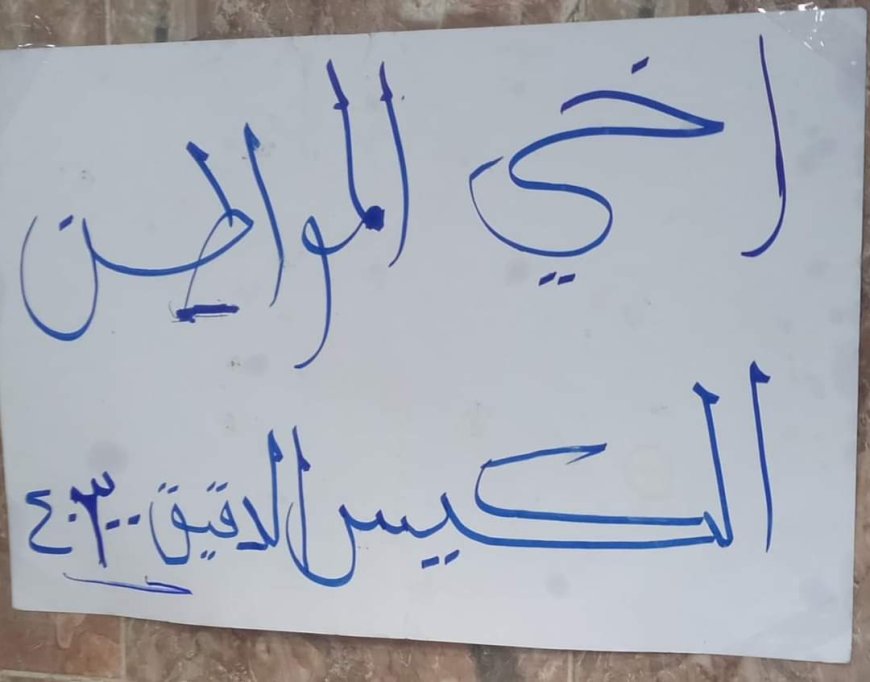 اخي المواطن
الكيس الدقيق ٤٠٣٠٠